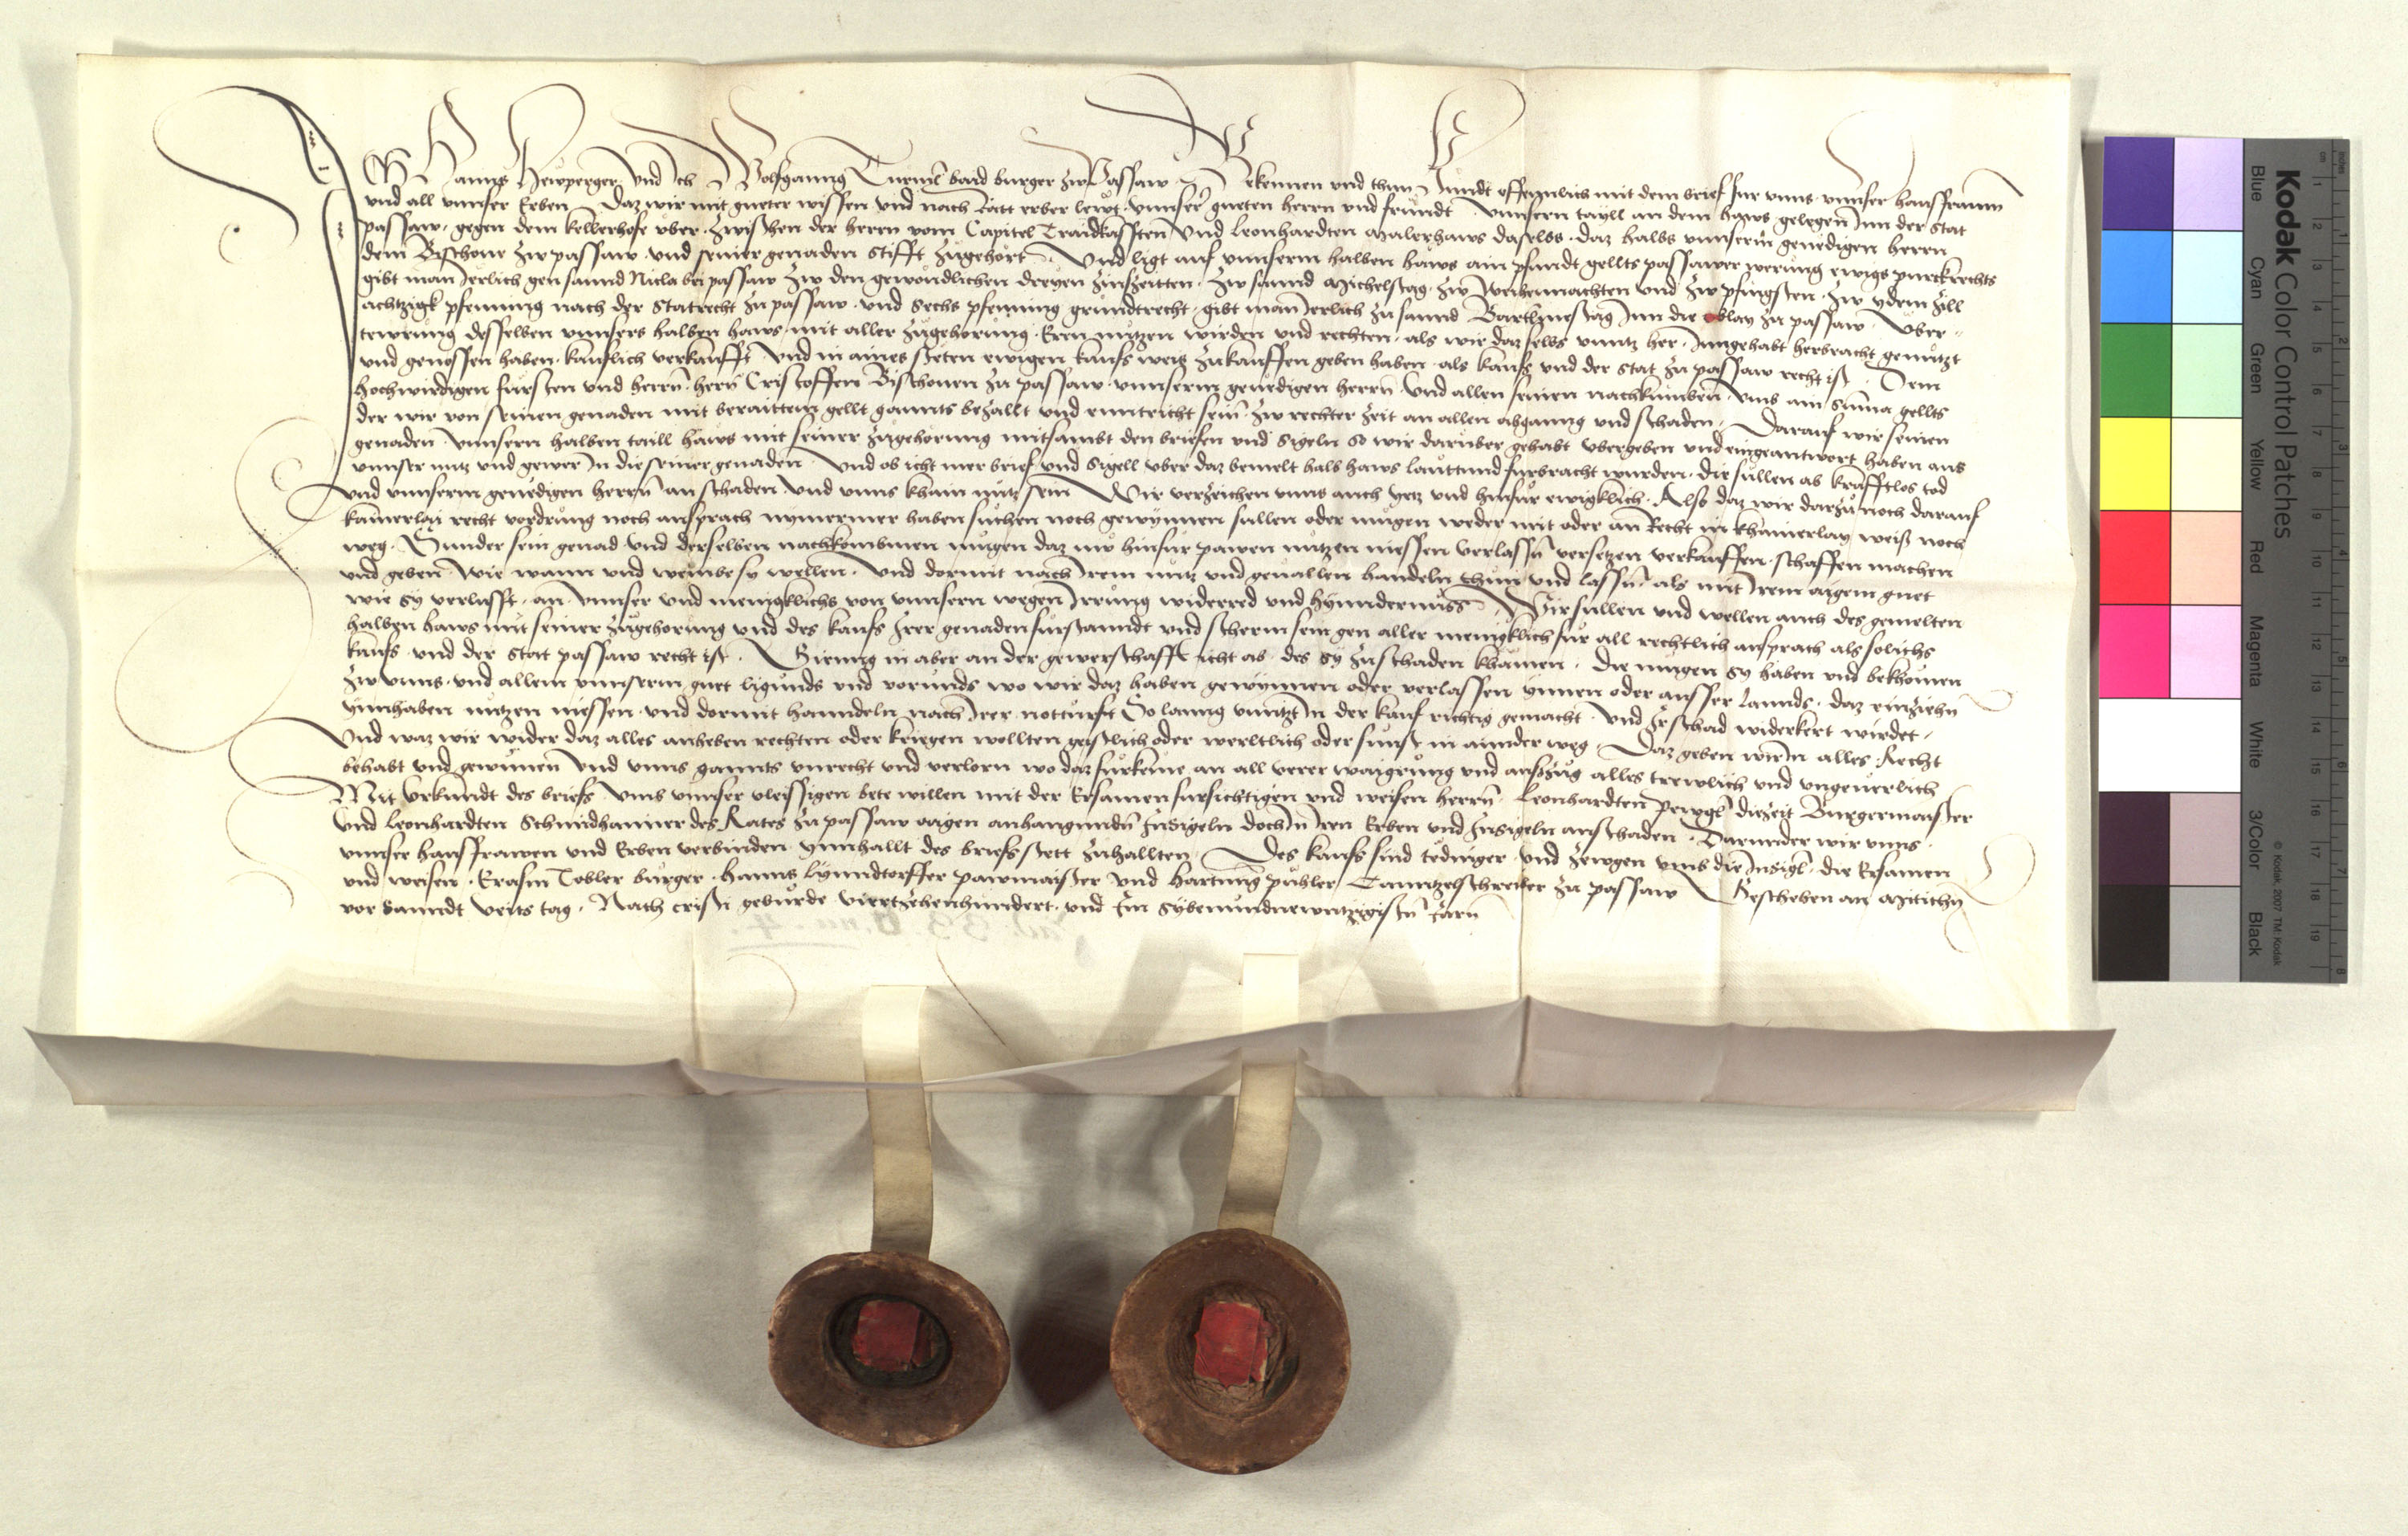 Ich Hanns Hewperger Und Ich Wolfganng Turml baid burger zw Passaw Bekennen und thun kundt offennlich mit dem brief fur unns unnser hausfrawn
und all unnser Erben Daz wir mit gueter wissen und nach Rätt erber lewt unnser gueten herrn und freundt unnsern tayll an dem haws gelegen Inn der Stat
passaw gegen dem kellerhofe uber zwischen der herrn vom Capitel Traidkassten Und Leonhardten Malerhaws daselbs daz halbs unnserm genedigen herrn
dem Bischove zw passaw und seiner genaden Stifft zugehört Und ligt auf unnserm halben haws ain pfundt gellts passawer werung ewigs purckrechts
gibt man Ierlich gen sannd Nicla bei passaw zw den gewondlichen dreyen zinszeitten zw sannd Michelstag zw Weihennachten und zw pfingsten zw ydem zill
achtzigk pfenning nach der Statrecht zu passaw und Sechs pfenning grundtrecht gibt man Ierlich zu sannd Bartlmestag Inn die oblay zu passaw Uber
tewrung desselben unnsers halben haws mit aller zugehorung Eren nutzen wirden und rechten als wir daz selbs unntz her Inngehabt herbracht genutzt
und genossen haben kauflich verkaufft Und in aines steten ewigen kaufs weis zukauffen geben haben als kaufs und der Stat zu passaw recht ist Dem
hochwirdigen fursten und herrn hern Cristoffen Bischoven zu passaw unnserm genedigen herrn Und allen seinen nachkumben umb ain Suma gellts
der wir von seinen genaden mit beraittem gellt gannts bezallt und enntricht sein zw rechter zeit an allen abganng und schaden Darauf wir seinen
genaden unnsern halben taill haws mit seiner zugehorung mitsambt den briefen und Sigeln so wir daruber gehabt ubergeben und eingeantwort haben aus
unnser nutz und gewer In die seiner genaden Und ob icht mer brief und Sigell uber daz bemelt halb haws lauttund furbracht wurden die sullen ab krafftlos tod
und unnserm genedigen herrn an schaden und unns khain nutz sein Wir verzeichen unns auch yetz und hinfur ewigklich Also daz wir darzu noch darauf
kainerlay recht vordrung noch ansprach nymermer haben suchen noch gewynnen sullen oder mugen weder mit oder an Recht in khainerlay weiß noch
weg Sunder sein genad und derselben nachkombmen mugen daz nw hinfur pawen nutzen niessen verlassn versetzen verkauffen schaffen machen
und geben Wie wann und wem sy wellen Und dormit nach Irem nutz und gevallen handeln thun und lassn als mit Irem aigem guet
wie sy verlusst an unnser und menigklichs von unnsern wegen Irrung widerred und hynndernüss Wir sullen und wellen auch des gemelten
halben haws mit seiner zugehorung und des kaufs Irer genaden furstanndt und scherm sein gen aller menigklich fur all rechtlich ansprach als solichs
kaufs und der Stat passaw recht ist Gienng in aber an der gewerschafft icht ab des sy zu schaden khämen die mugen sy haben und bekhomen
zw unns und allem unnserm guet ligunds und varunds wo wir daz haben gewynnen oder verlassen ynnen oder ausser Lannds daz einziehn
ynnhaben nutzen niessen und dormit hanndeln nach Irer notturft So lanng unntzt In der kauf richtig gemacht Und Ir schad widerkert wirdet
Und waz wir wider daz alles anheben rechten oder kriegen wollten geistlich oder werltlich oder sunst in ainder weg Daz geben wir In alles Recht
behabt und gewunen Und unns gannts unrecht und verlorn wo daz furkeme an all verer waigrung und auszug alles trewlich und ungeverlich
Mit Urkundt des briefs umb unnser vleissigen bete willen mit der Ersamen fursichtigen und weisen herrn Leonhardten pewgl diezeit Burgermaister
und Leonhardten Schmidhamer des Rates zu passaw aigen anhangunden Insigeln doch In Iren Erben und Insigeln an schaden Darunder wir unns
unnser hausfrawen und Erben verbinden Innhallt des briefs stett zuhallten Des kaufs sind tedinger und zewgen umb die Insigl die Ersamen
und weisen Erasm Tobler burger hanns Lynndtorffer pawmaister und Hartung puhler Canntzelschreiber zu passaw Geschehen an Mitichn
vor Sanndt veits tag Nach cristi geburde viertzehenhundert und Im Sybenundnewntzigistn Jarn
Kodak Color Control Patches
Blue Cyan Green Yellow Red Magenta White 3/Color Black
© Kodak, 2007 TM: Kodak